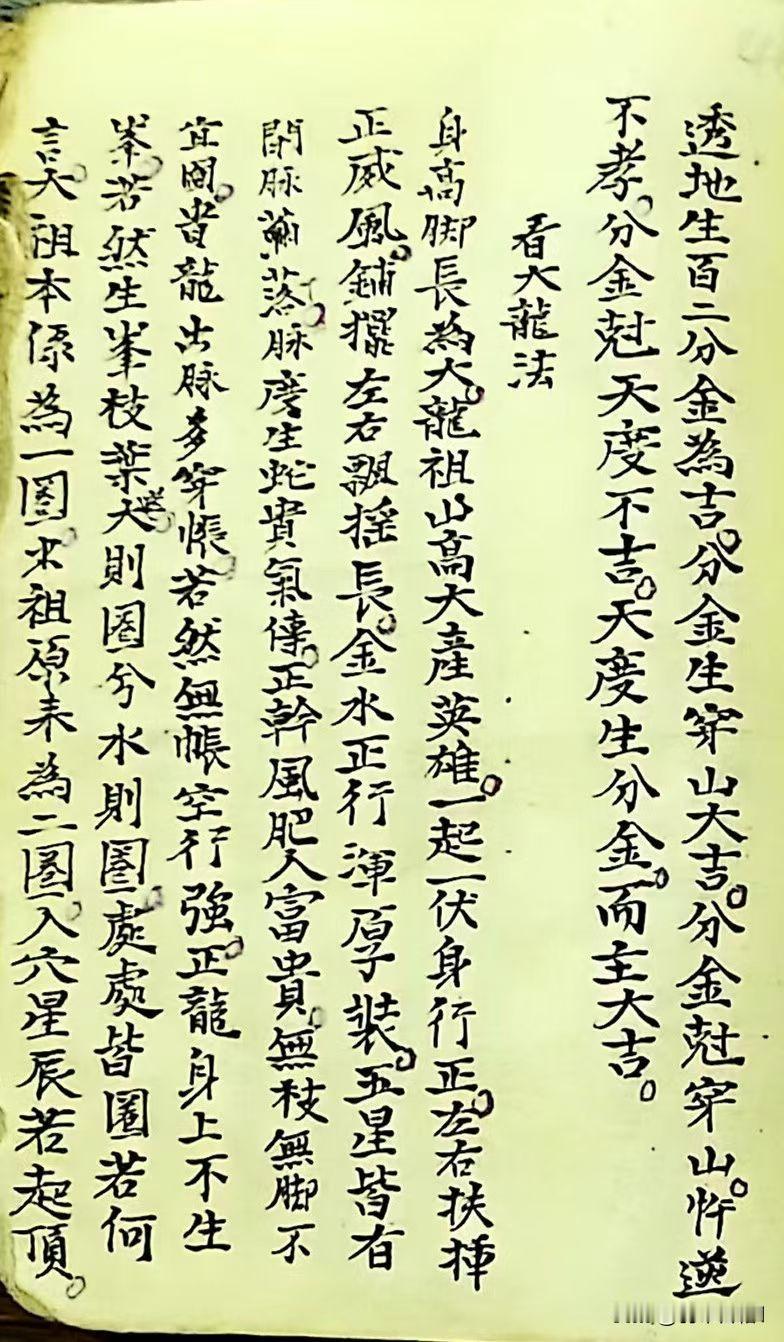 透地生百二分金為吉。分金生穿山大吉。分金尅穿山。忤逆
不孝。分金尅天度不吉。天度生分金。而主大吉。
看大龍法
身高脚長為大。龍祖山高大產英雄。一起一伏身行正。左右扶
正威風。鋪擺左右飄摇長。金水正行渾厚裝。五星皆有
開脉落。脉度生蛇貴氣傳。正幹風肥人富貴。無枝無脚不
宜圖。貴龍出脉多穿帳。若然無帳空行強。正龍身上不生
峯。若然生峯枝葉大則圖分水則圖。處處皆圖若何
言。大祖本係為一圖。木祖原来為二圖。入穴星辰若起頂。